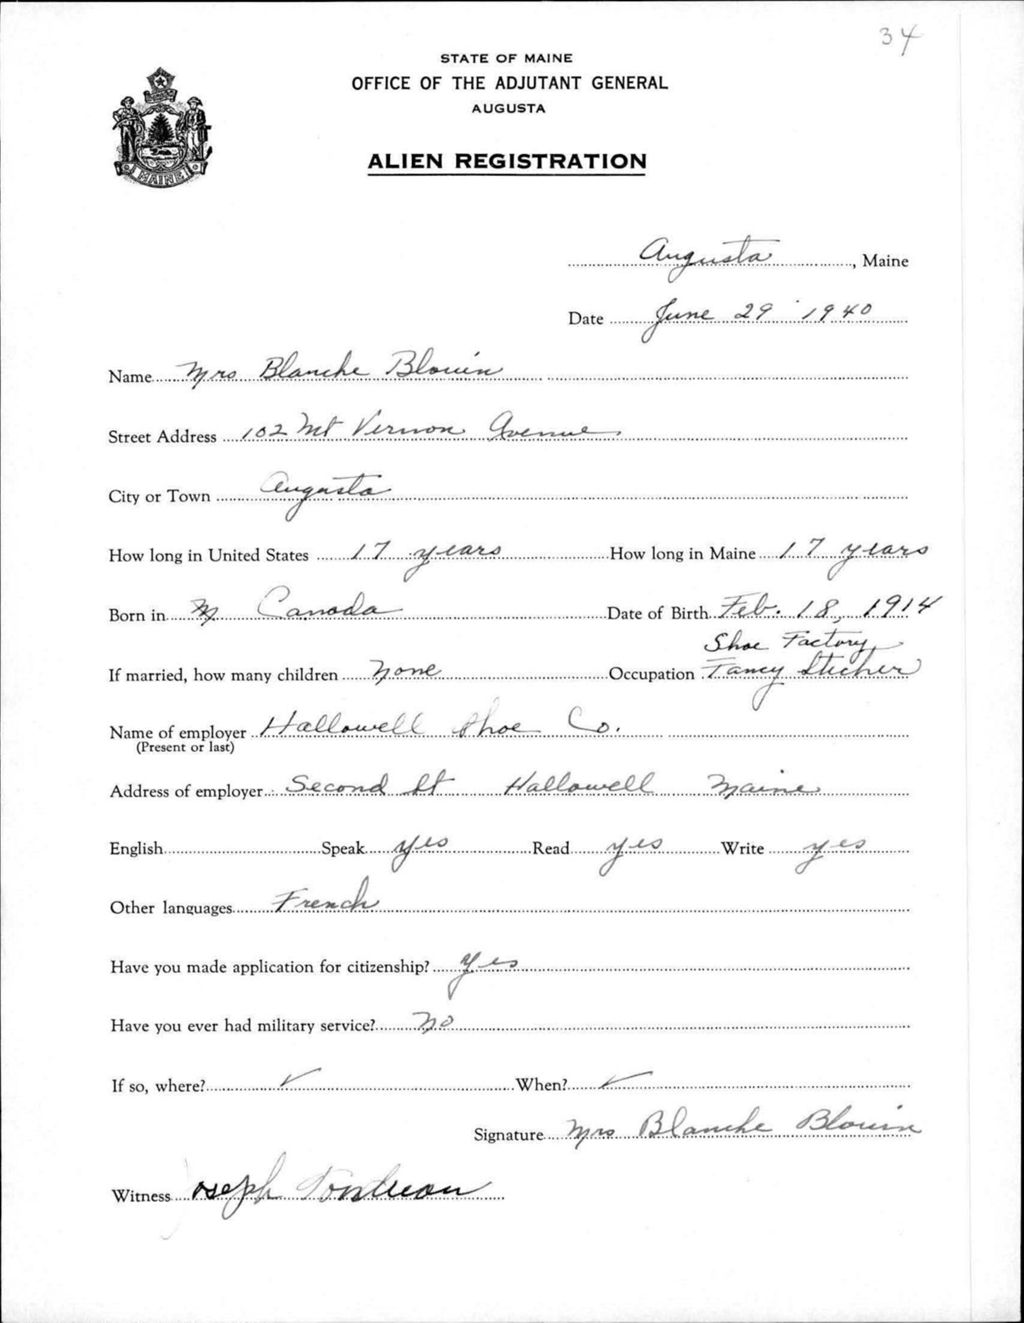 34
STATE OF MAINE
OFFICE OF THE ADJUTANT GENERAL
AUGUSTA
MAINE
ALIEN REGISTRATION
Augusta, Maine
Date June 29 1940
Name Mrs Blanche Blouin
Street Address 102 Mt Vernon Avenue
City or Town Augusta
How long in United States 17 years How long in Maine 17 years
Born in Canada Date of Birth Feb. 18, 1914
Shoe Factory
If married, how many children None Occupation Fancy Sticher
Name of employer Hallowell Shoe Co.
(Present or last)
Address of employer Second St Hallowell Maine
English Speak yes Read yes Write yes
Other languages French
Have you made application for citizenship? Yes
Have you ever had military service? No
If so, where? ✓ When? ✓
Signature Mrs Blanche Blouin
Witness Joseph